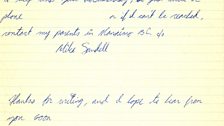 phone or if I can't be reached,
contact my parents in
Mike
Thanks for writing, and I hope to hear from
you soon